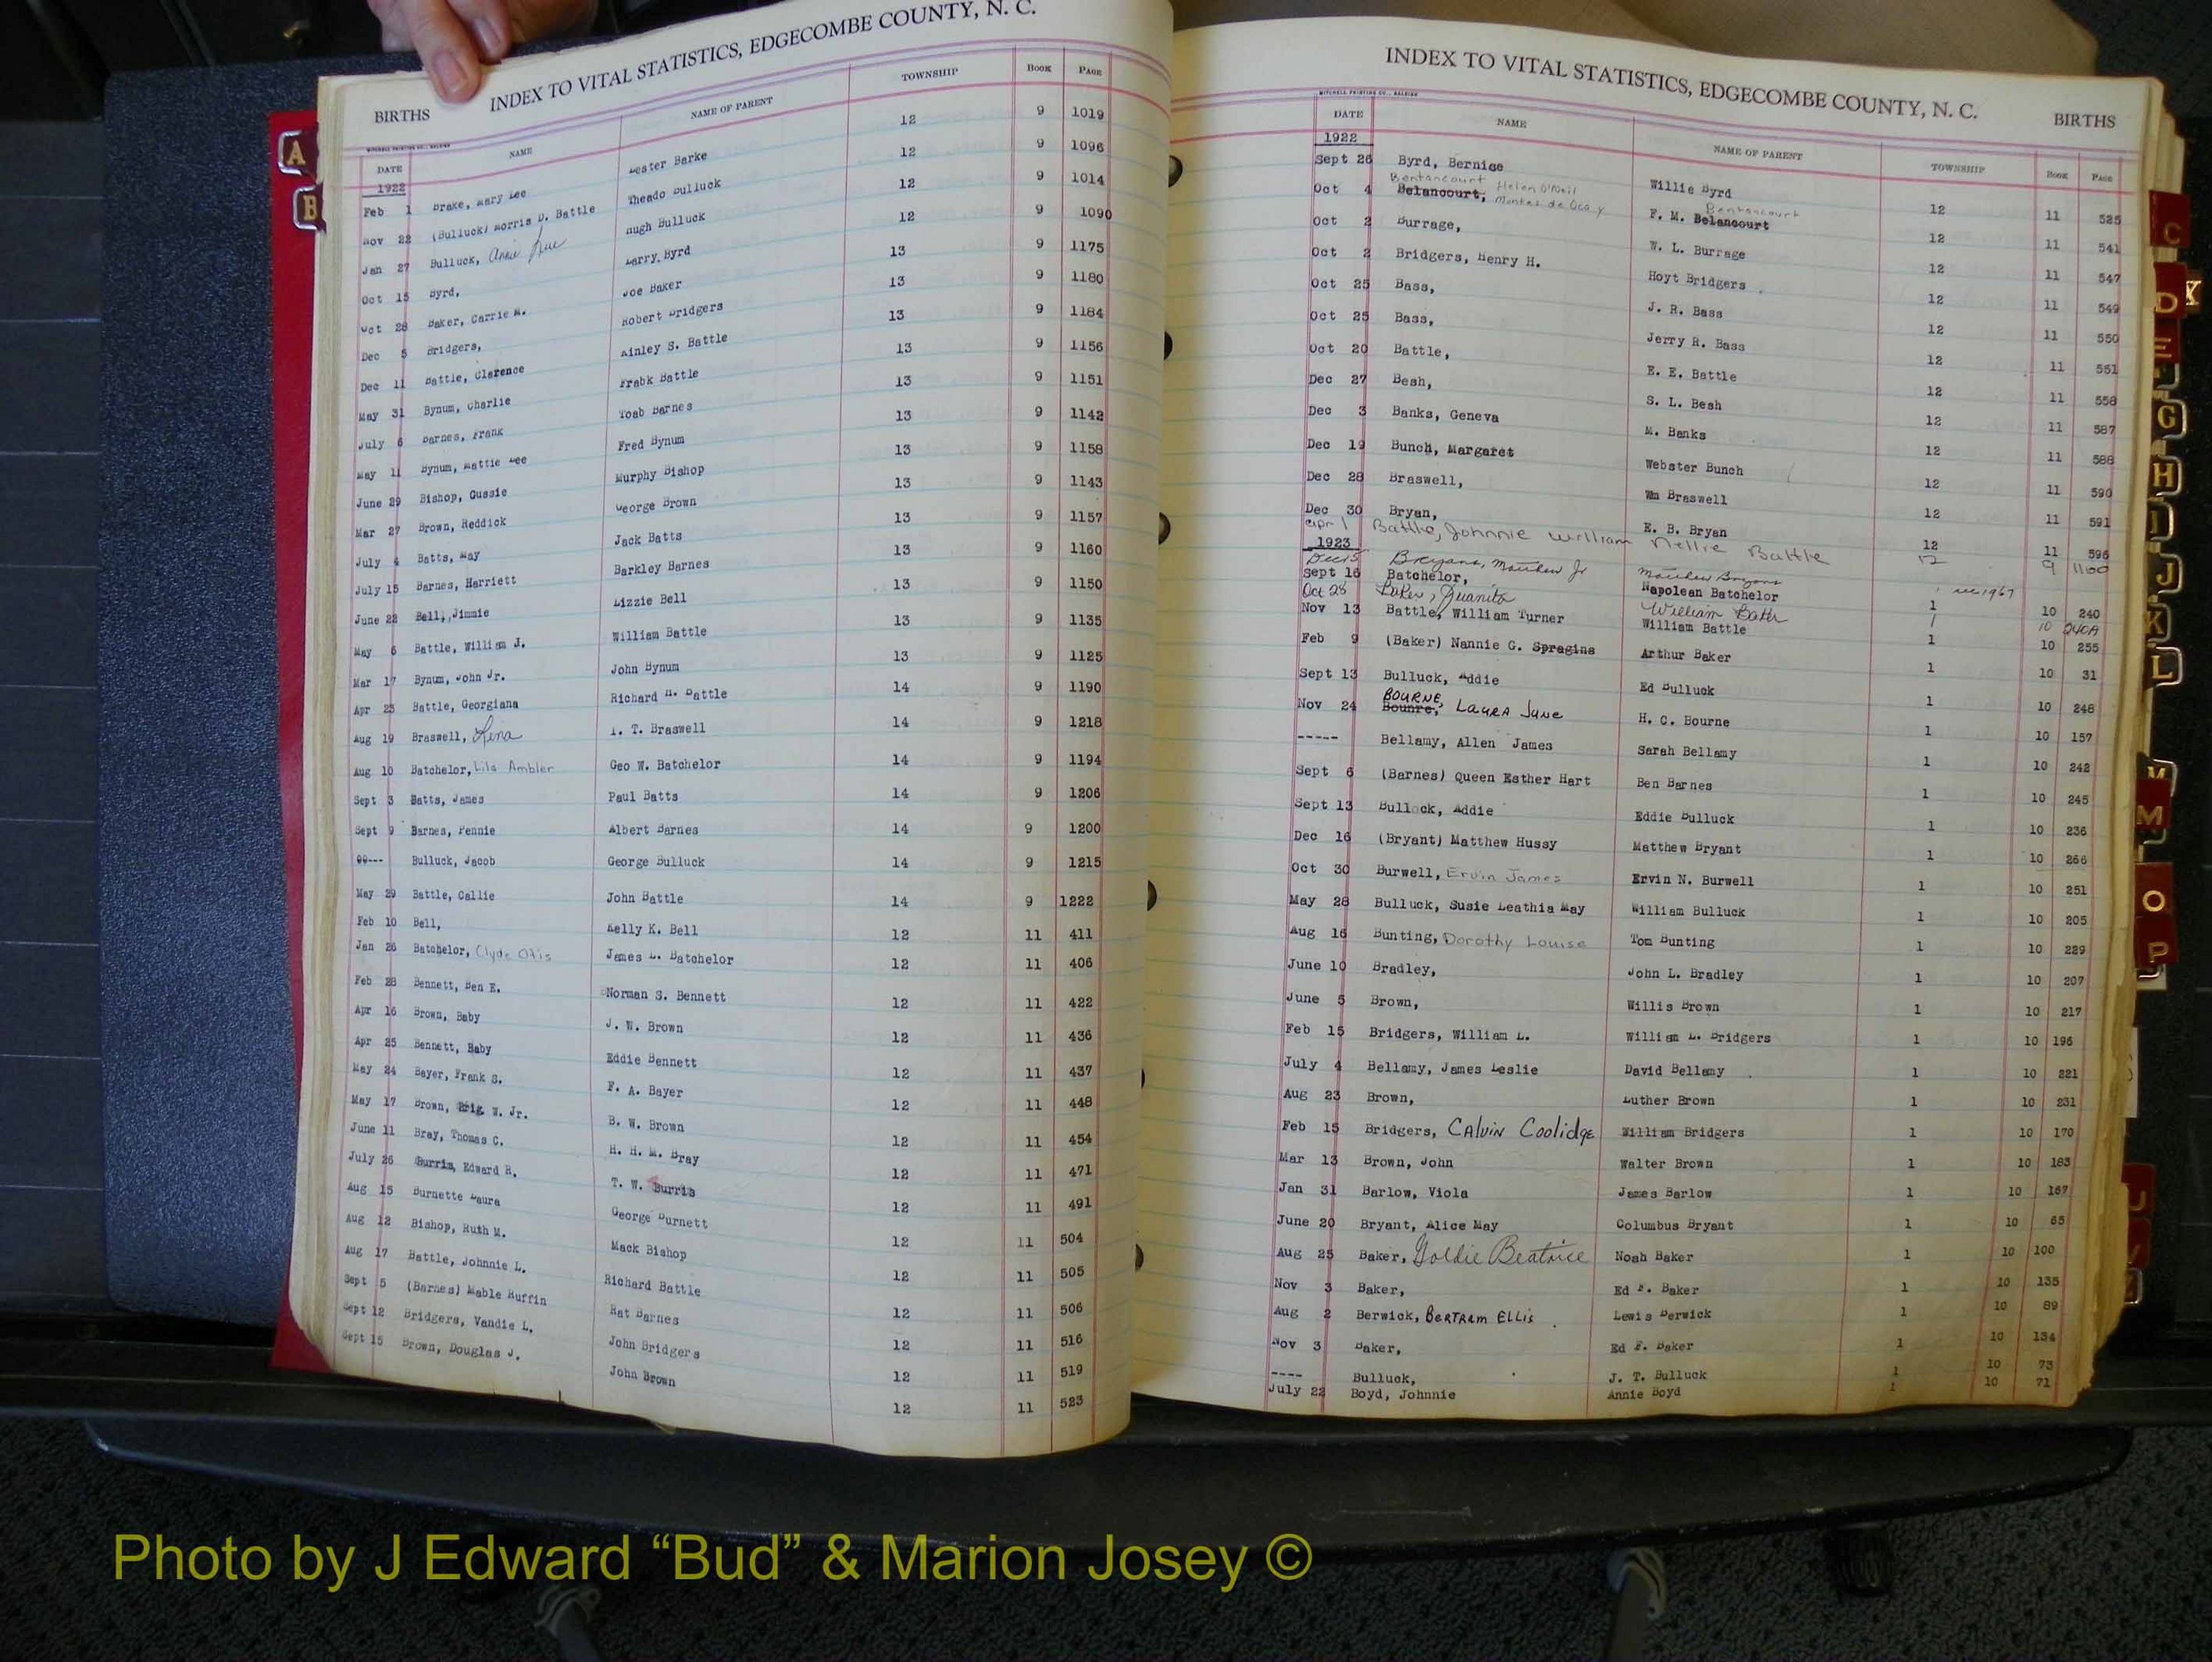 INDEX TO VITAL STATISTICS, EDGECOMBE COUNTY, N. C.
BIRTHS
DATE NAME NAME OF PARENT TOWNSHIP BOOK PAGE
1922
Feb 1 Brake, Mary Lee Lester Barke 12 9 1019
Nov 22 (Bulluck) Morris D. Battle Theado Bulluck 12 9 1096
Jan 27 Bulluck, Annie Rue Hugh Bulluck 12 9 1014
Oct 15 Byrd, Larry Byrd 12 9 1090
Oct 28 Baker, Carrie M. Joe Baker 13 9 1175
Dec 5 Bridgers, Robert Bridgers 13 9 1180
Dec 11 Battle, Clarence Ainley S. Battle 13 9 1184
May 31 Bynum, Charlie Frabk Battle 13 9 1156
July 6 Barnes, Frank Toab Barnes 13 9 1151
May 11 Bynum, Mattie Lee Fred Bynum 13 9 1142
June 29 Bishop, Gussie Murphy Bishop 13 9 1158
Mar 27 Brown, Reddick George Brown 13 9 1143
July 4 Batts, May Jack Batts 13 9 1157
July 15 Barnes, Harriett Barkley Barnes 13 9 1160
June 22 Bell, Jimmie Lizzie Bell 13 9 1150
May 6 Battle, William J. William Battle 13 9 1135
Mar 17 Bynum, John Jr. John Bynum 13 9 1125
Apr 23 Battle, Georgiana Richard H. Battle 14 9 1190
Aug 19 Braswell, Lena T. Braswell 14 9 1218
Aug 10 Batchelor, Lila Ambler Geo W. Batchelor 14 9 1194
Sept 3 Batts, James Paul Batts 14 9 1206
Sept 9 Barnes, Pennie Albert Barnes 14 9 1200
--- Bulluck, Jacob George Bulluck 14 9 1215
May 29 Battle, Callie John Battle 14 9 1222
Feb 10 Bell, Kelly K. Bell 12 11 411
Jan 26 Batchelor, Clyde Otis James L. Batchelor 12 11 406
Feb 28 Bennett, Ben E. Norman S. Bennett 12 11 422
Apr 16 Brown, Baby J. W. Brown 12 11 436
Apr 25 Bennett, Baby Eddie Bennett 12 11 437
May 24 Bayer, Frank S. F. A. Bayer 12 11 448
May 17 Brown, Brig W. Jr. B. W. Brown 12 11 454
June 11 Bray, Thomas C. H. H. M. Bray 12 11 471
July 26 Burris, Edward R. T. W. Burris 12 11 491
Aug 15 Burnette Laura George Burnett 12 11 504
Aug 12 Bishop, Ruth M. Mack Bishop 12 11 505
Aug 17 Battle, Johnnie L. Richard Battle 12 11 506
Sept 5 (Barnes) Mable Ruffin Rat Barnes 12 11 516
Sept 12 Bridgers, Vandie L. John Bridgers 12 11 519
Sept 15 Brown, Douglas J. John Brown 12 11 523
INDEX TO VITAL STATISTICS, EDGECOMBE COUNTY, N. C.
BIRTHS
MITCHELL PRINTING CO., RALEIGH
DATE NAME NAME OF PARENT TOWNSHIP BOOK PAGE
1922
Sept 26 Byrd, Bernice Willie Byrd 12 11 525
Bentancourt Helen O'Neil Bentancourt
Oct 4 Belancourt, Montes de Oca y F. M. Belancourt 12 11 541
Oct 2 Burrage, W. L. Burrage 12 11 547
Oct 2 Bridgers, Henry H. Hoyt Bridgers 12 11 549
Oct 25 Bass, J. R. Bass 12 11 550
Oct 25 Bass, Jerry R. Bass 12 11 551
Oct 20 Battle, E. E. Battle 12 11 558
Dec 27 Besh, S. L. Besh 12 11 587
Dec 3 Banks, Geneva M. Banks 12 11 588
Dec 19 Bunch, Margaret Webster Bunch 12 11 590
Dec 28 Braswell, Wm Braswell 12 11 591
Dec 30 Bryan, E. B. Bryan 12 11 596
Apr 1 Battle, Johnnie William Nellie Battle 12 9 1100
1923
Dec 5 Bryans, Matthew Jr Matthew Bryans 1967
Sept 16 Batchelor, Napolean Batchelor 1 10 240
Oct 28 Baker, Juanita William Baker 1 10 240A
Nov 13 Battle, William Turner William Battle 1 10 255
Feb 9 (Baker) Nannie G. Spragins Arthur Baker 1 10 31
Sept 13 Bulluck, Addie Ed Bulluck 1 10 248
BOURNE,
Nov 24 Bounre, LAURA June H. C. Bourne 1 10 157
----- Bellamy, Allen James Sarah Bellamy 1 10 242
Sept 6 (Barnes) Queen Esther Hart Ben Barnes 1 10 245
Sept 13 Bullock, Addie Eddie Bulluck 1 10 236
Dec 16 (Bryant) Matthew Hussy Matthew Bryant 1 10 266
Oct 30 Burwell, Ervin James Ervin N. Burwell 1 10 251
May 28 Bulluck, Susie Leathia May William Bulluck 1 10 205
Aug 16 Bunting, Dorothy Louise Tom Bunting 1 10 229
June 10 Bradley, John L. Bradley 1 10 207
June 5 Brown, Willis Brown 1 10 217
Feb 15 Bridgers, William L. William L. Bridgers 1 10 196
July 4 Bellamy, James Leslie David Bellamy 1 10 221
Aug 23 Brown, Luther Brown 1 10 231
Feb 15 Bridgers, CALVIN Coolidge William Bridgers 1 10 170
Mar 13 Brown, John Walter Brown 1 10 183
Jan 31 Barlow, Viola James Barlow 1 10 167
June 20 Bryant, Alice May Columbus Bryant 1 10 65
Aug 25 Baker, Goldie Beatrice Noah Baker 1 10 100
Nov 3 Baker, Ed F. Baker 1 10 135
Aug 2 Berwick, BERTRAM ELLis Lewis Berwick 1 10 89
Nov 3 Baker, Ed F. Baker 1 10 134
---- Bulluck, J. T. Bulluck 1 10 73
July 22 Boyd, Johnnie Annie Boyd 1 10 71
A
B
C
D
E
G
H
I
J
K
L
M
M
O
P
U
Photo by J Edward “Bud” & Marion Josey ©